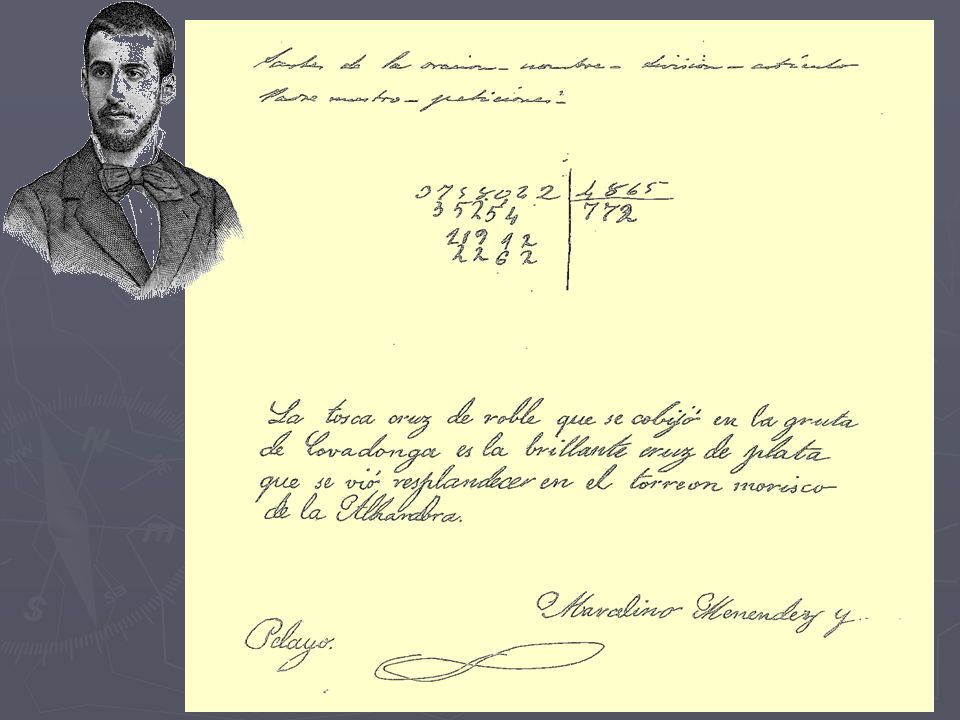 Partes de la oracion - nombre - división - artículo
Padre nuestro - peticiones -
3758022 | 4865
35254 772
11912
2262
La tosca cruz de roble que se cobijó en la gruta
de Covadonga es la brillante cruz de plata
que se vió resplandecer en el torreon morisco
de la Alhambra.
Marcelino Menendez y
Pelayo.